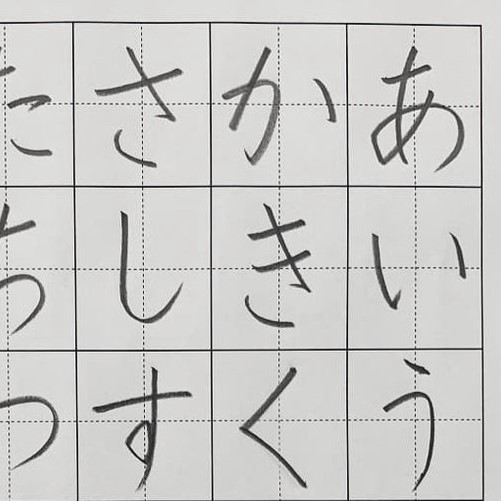 あいう
かきく
さしす
たちつ